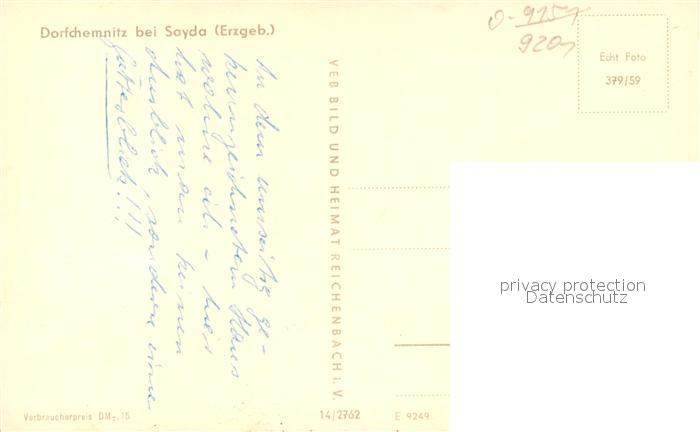 Dorfchemnitz bei Sayda (Erzgeb.)
0-9157
9201
Echt Foto
379/59
In dem umseitig ge-
kennzeichneten Haus
wohne ich - hier
hat man keinen
Ausblick, sondern eine
Gottesblick!!!
VEB BILD UND HEIMAT REICHENBACH I. V.
privacy protection
Datenschutz
Verbraucherpreis DM -,15
14/2762
E 9249